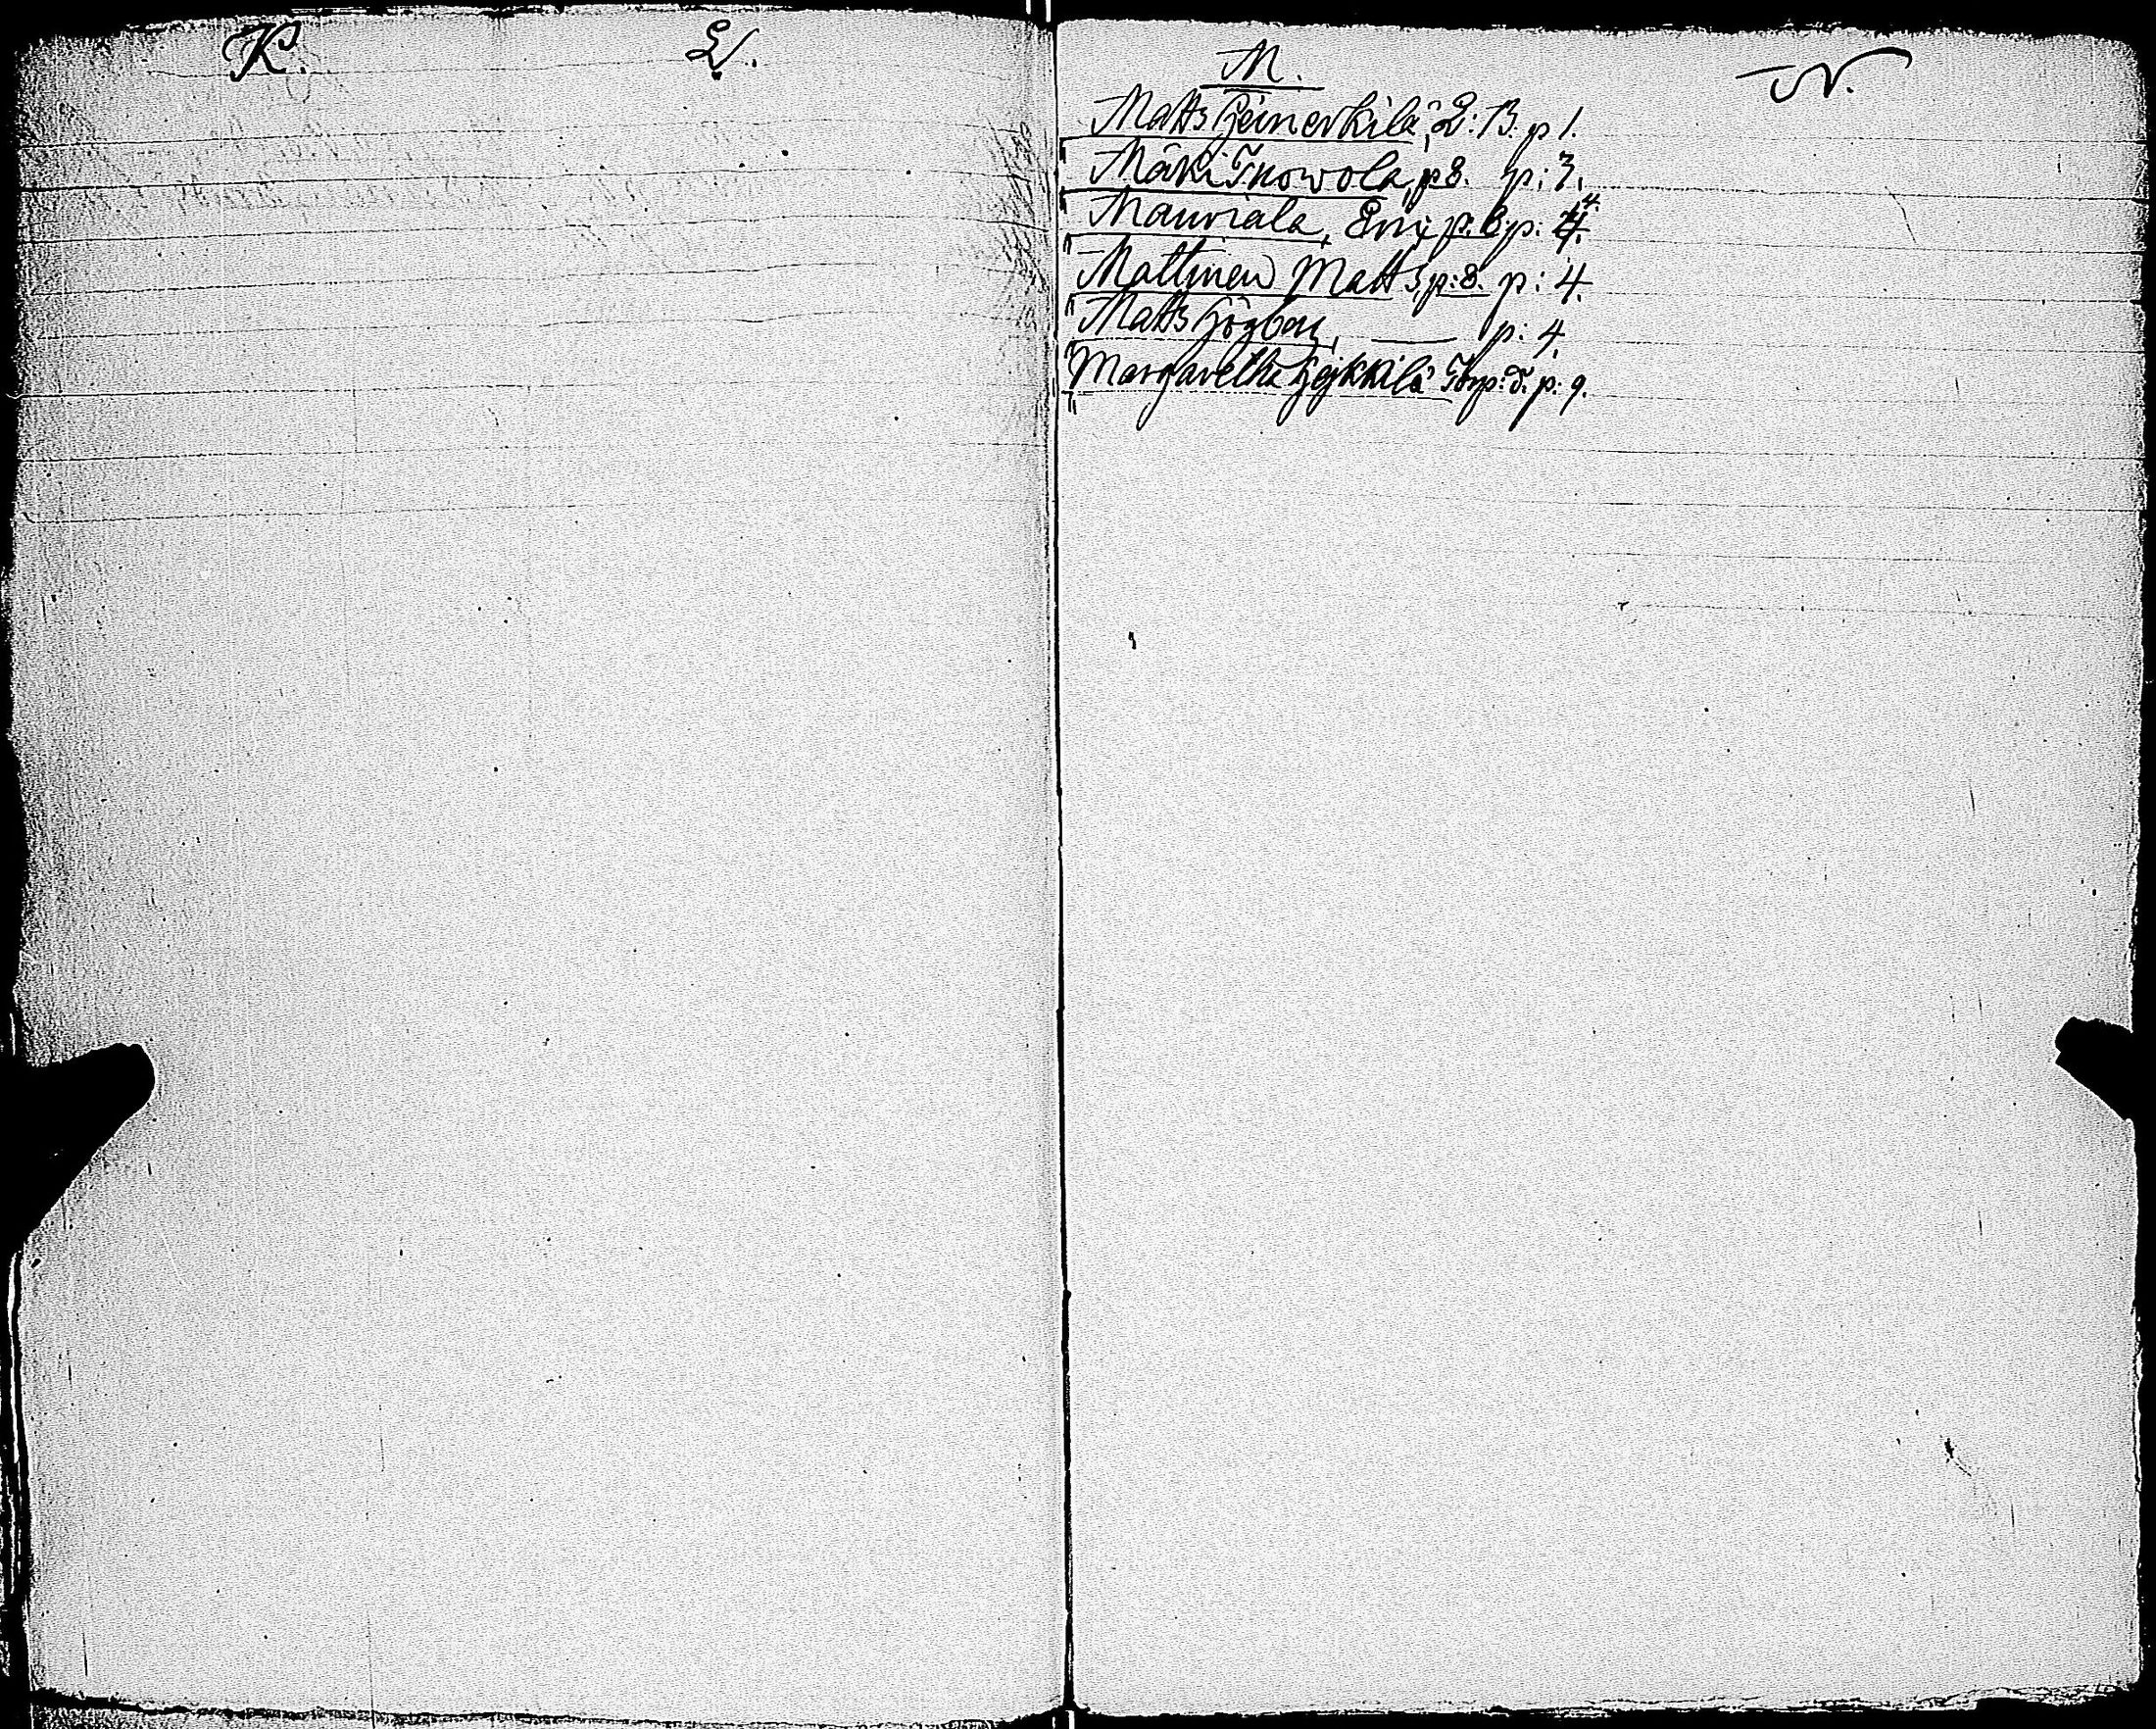 K.
L.
M.
Matts Heinerkilä, L: B. p 1.
Mäki Inowola, p 8. p: 3.
Mauriala, Eric p. 8. p: 4.
Mattinen Matts, p: 8. p: 4.
Matts Högben, — p: 4.
Margaretha Hejkkilä p: 9.
N.